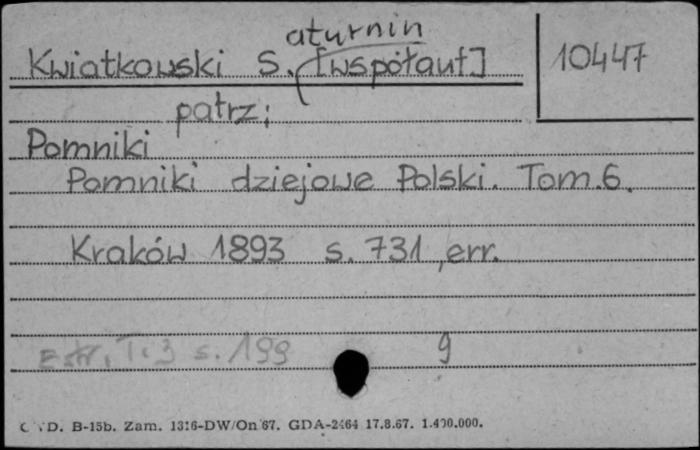 aturnin
Kwiatkowski S. [współaut] 10447
patrz:
Pomniki
Pomniki dziejowe Polski. Tom. 6.
Kraków 1893 s. 731, err.
Estr. T. 3 s. 199 9
D. B-15b. Zam. 1316-DW/On 67. GDA-2464 17.8.67. 1.400.000.